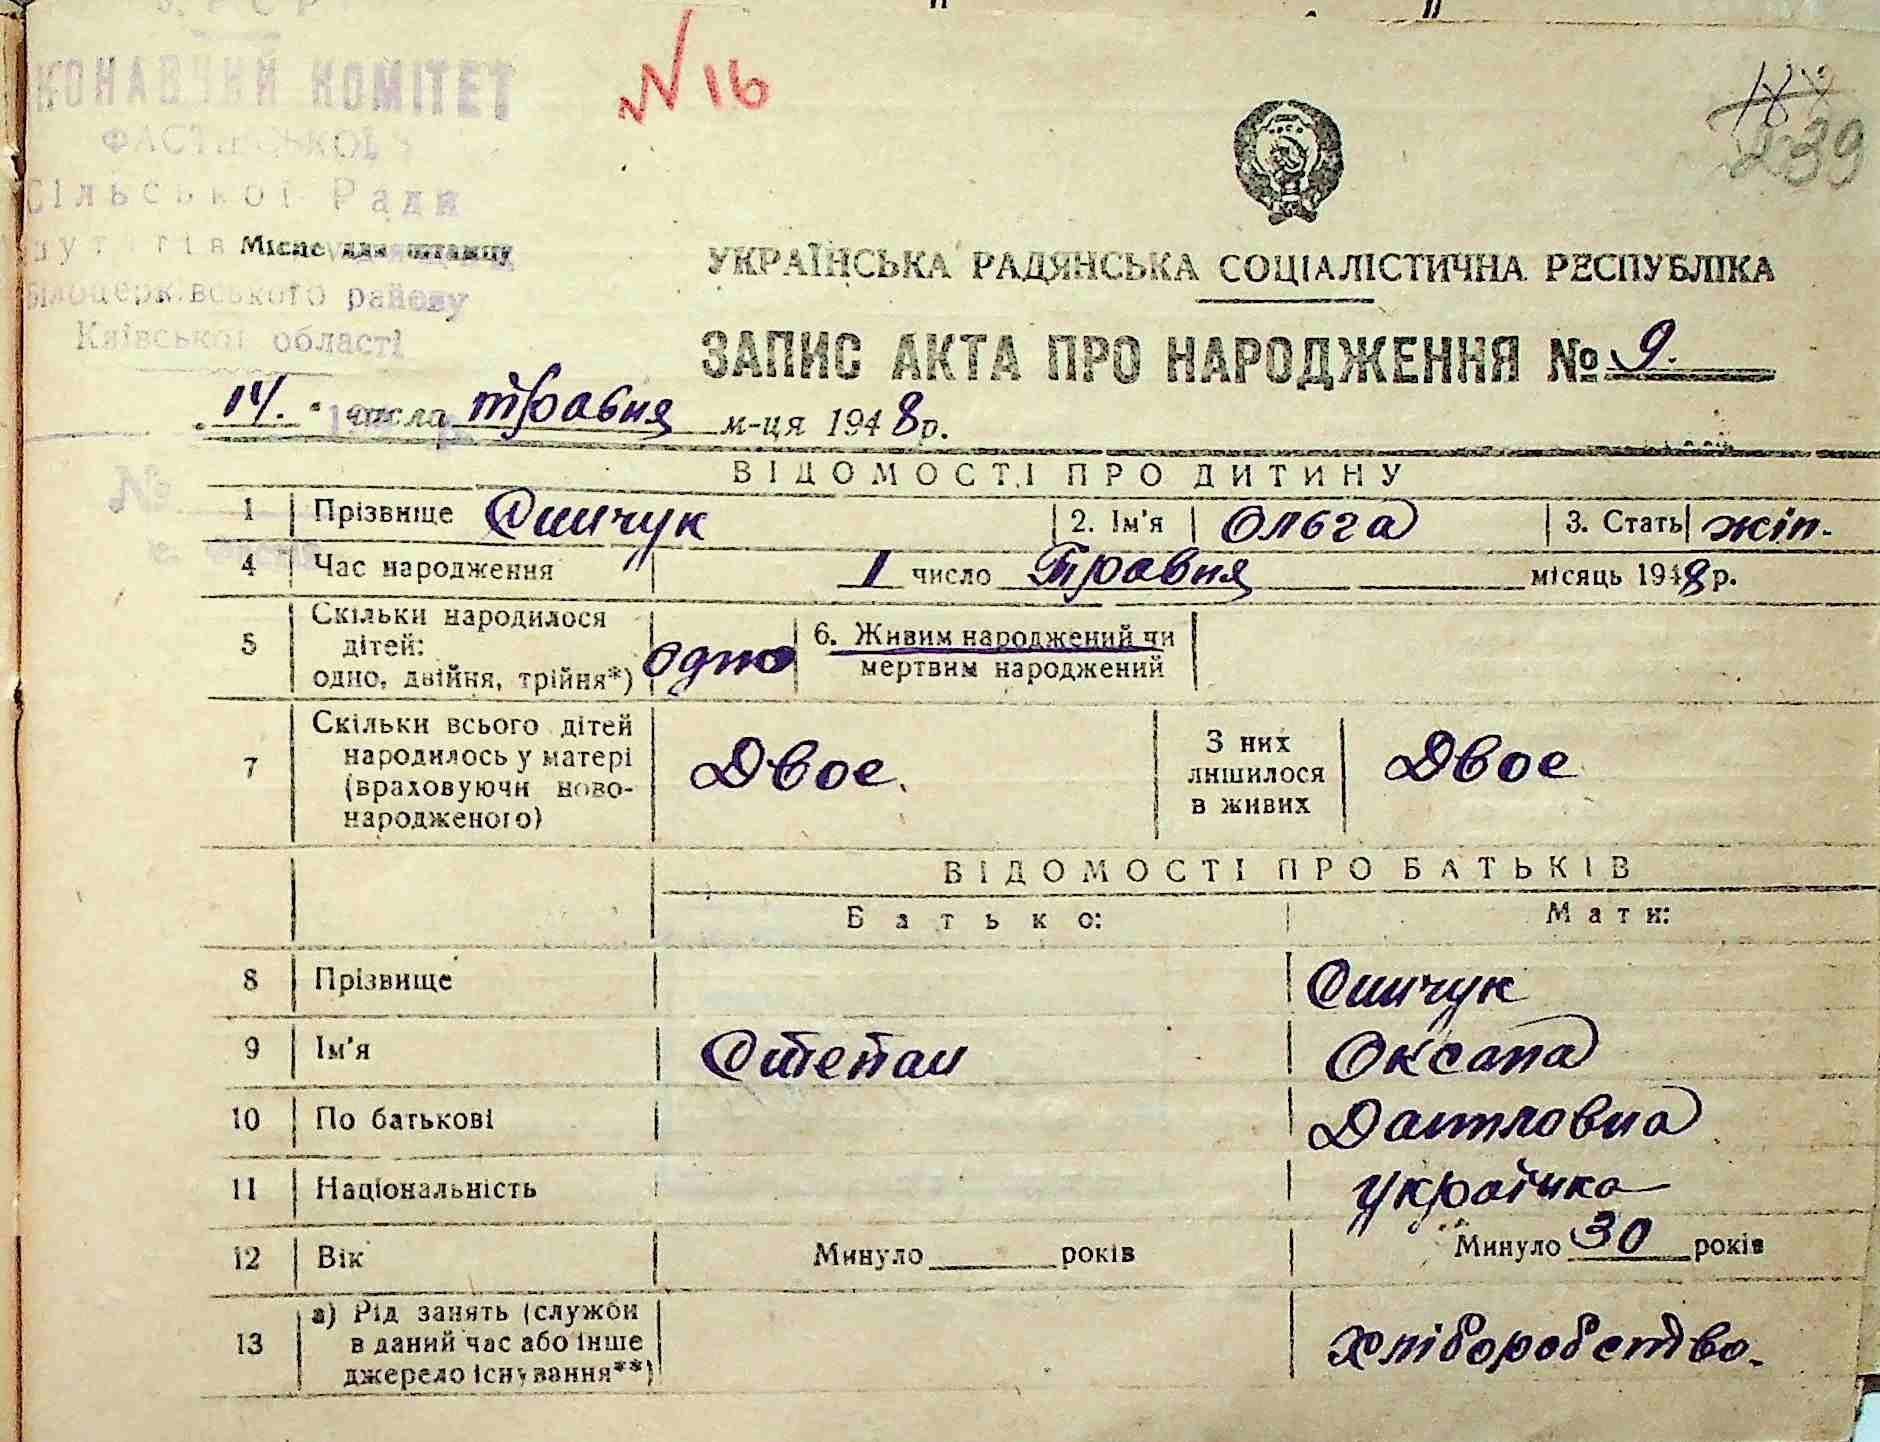 КОНАВЧИЙ КОМІТЕТ
ФАСТІВСЬКОЇ
Сільської Ради
Білоцерківського району
Київської області
№ 16
188
239
Місце для штампу
УКРАЇНСЬКА РАДЯНСЬКА СОЦІАЛІСТИЧНА РЕСПУБЛІКА
ЗАПИС АКТА ПРО НАРОДЖЕННЯ № 9.
14. числа травня м-ця 1948 р.
№
ВІДОМОСТІ ПРО ДИТИНУ
1 Прізвище Сінчук 2. Ім'я Ольга 3. Стать жін.
4 Час народження 1 число Травня місяць 1948 р.
5 Скільки народилося дітей: одно, двійня, трійня*) одно 6. Живим народжений чи мертвим народжений
7 Скільки всього дітей народилось у матері (враховуючи новонародженого) Двое. З них лишилося в живих Двое
ВІДОМОСТІ ПРО БАТЬКІВ
Батько: Мати:
8 Прізвище Сінчук
9 Ім'я Степан Оксана
10 По батькові Даниловна
11 Національність українка
12 Вік Минуло років Минуло 30 років
13 а) Рід занять (служби в даний час або інше джерело існування**) хліборобство.